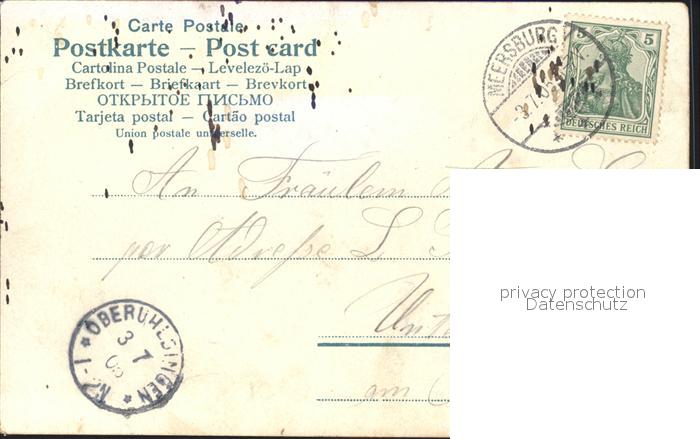 Carte Postale
Postkarte – Post card
Cartolina Postale – Levelező-Lap
Brefkort – Briefkaart – Brevkort
ОТКРЫТОЕ ПИСЬМО
Tarjeta postal – Cartão postal
Union postale universelle.
MEERSBURG
5 5
DEUTSCHES REICH
An Fräulein
per Adresse L
privacy protection
Datenschutz
OBERUHLDINGEN
3 7
am